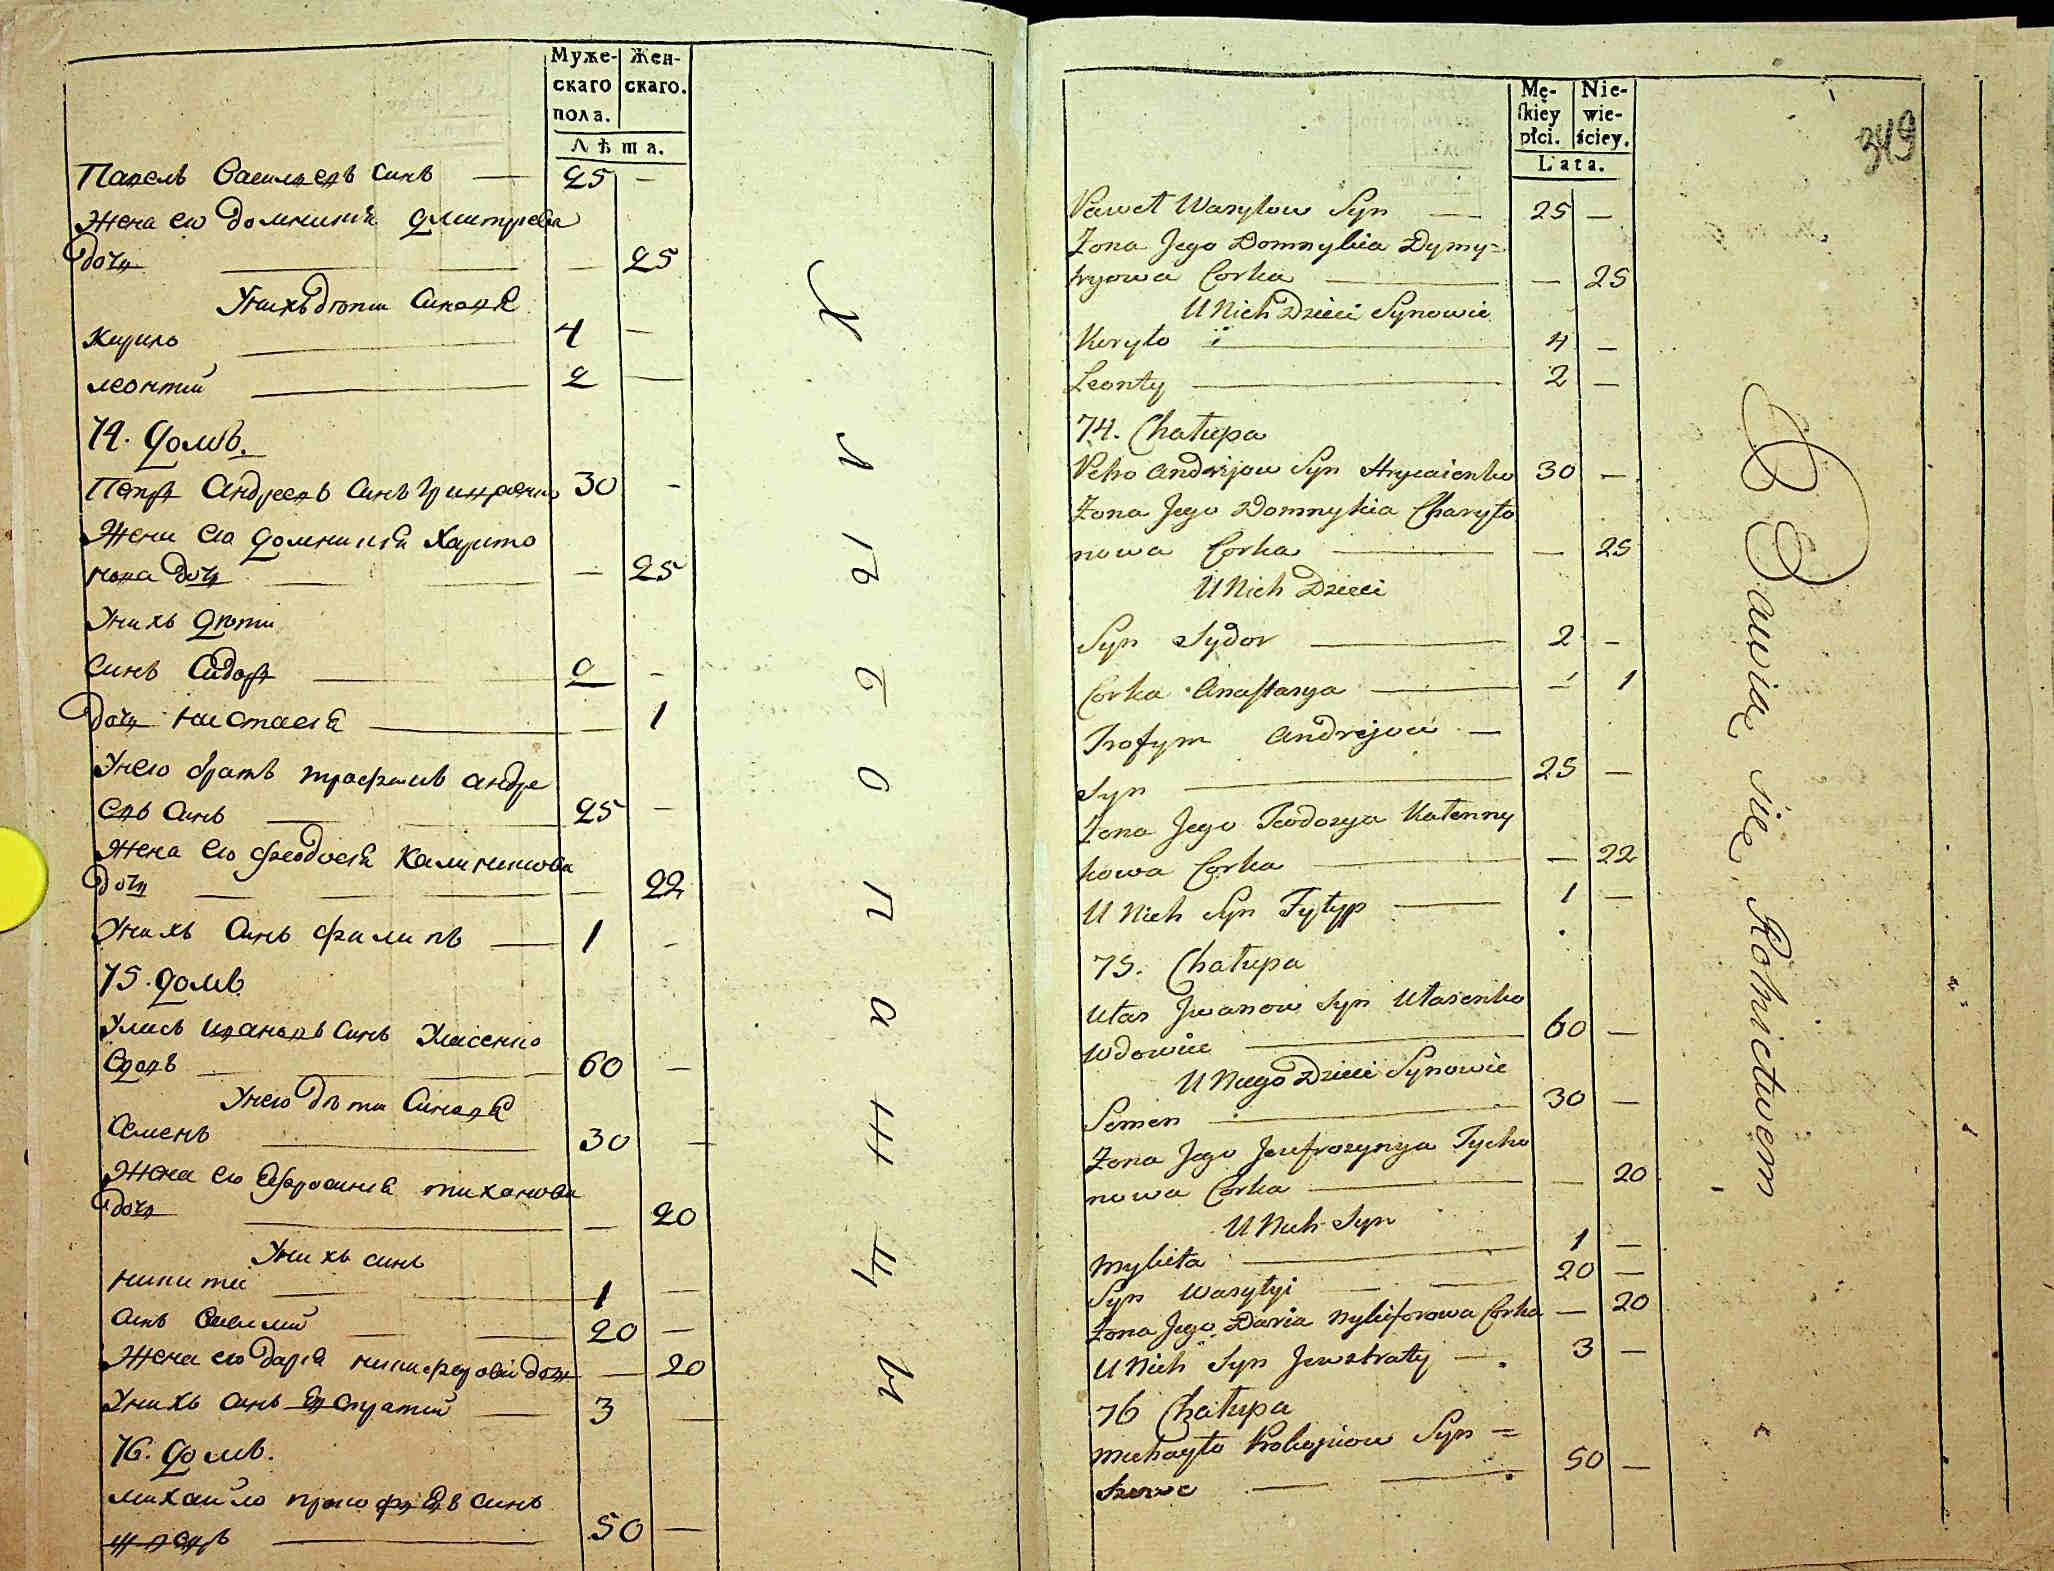 Муже-
скаго
пола.
Жен-
скаго.
Лѣта.
Павелъ Васильевъ синъ — 25 —
Жена его Домникія Дмитрева
дочь — — 25
У нихъ дѣти Синовя
Кирило — 4 —
Леонтій — 2 —
74. Домъ.
Петръ Андреевъ Синъ Грицаенко 30 -
Жена его Домникія Харито
нова дочь — — 25
У нихъ Дѣти
Синъ Сидоръ — 2 -
дочь Настасія — — 1
У него братъ трофимъ андре
евъ Синъ — 25 —
Жена его феодосія Калиникова
дочь — — 22
У нихъ Синъ филипъ — 1 -
75. Домъ.
Уласъ Ивановъ Синъ Уласенко
вдовъ — 60 —
У него дѣти Синовя
Семенъ — 30 —
Жена его Ефросинія тиханова
дочь — — 20
У нихъ синъ
никита — 1 —
Синъ Василій — 20 —
Жена его Даря никифорова дочь — 20
У нихъ синъ Евстратій — 3 —
76. Домъ.
Михайло прокофіевъ синъ
швецъ — 50 —
Хлѣбопашици
Mę-
skiey
płci.
Nie-
wie-
ściey.
Lata.
349
Paweł Wasylow Syn — 25 —
Żona Jego Domnykia Dymy=
tryowa Corka — — 25
U Nich Dzieci Synowie
Kyryło — 4 —
Leonty — 2 —
74. Chałupa
Petro Andrijow Syn Hrycaienko 30 —
Żona Jego Domnykia Charyto
nowa Corka — — 25
U Nich Dzieci
Syn Sydor — 2 —
Corka Anastasya — — 1
Trofym Andrejow —
Syn — 25 —
Żona Jego Teodosya Kałenny
kowa Corka — — 22
U Nich Syn Fyłyp — 1 —
75. Chałupa
Ułas Jwanow Syn Ułasenko
Wdowiec — 60 —
U Niego Dzieci Synowie
Semen — 30 —
Żona Jego Jeufrozynya Tycho
nowa Corka — — 20
U Nich Syn
Mykita — 1 —
Syn Wasylyi — 20 —
Żona Jego Daria Nykiforowa Corka — 20
U Nich Syn Jewstraty — 3 —
76 Chałupa
Michayło Prokopiow Syn =
Szewc — 50 —
Bawią się Rolnictwem